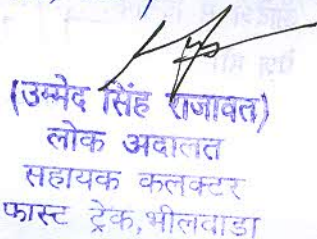 (उम्मेद सिंह राजावत)
लोक अदालत
सहायक कलक्टर
फास्ट ट्रेक,भीलवाडा